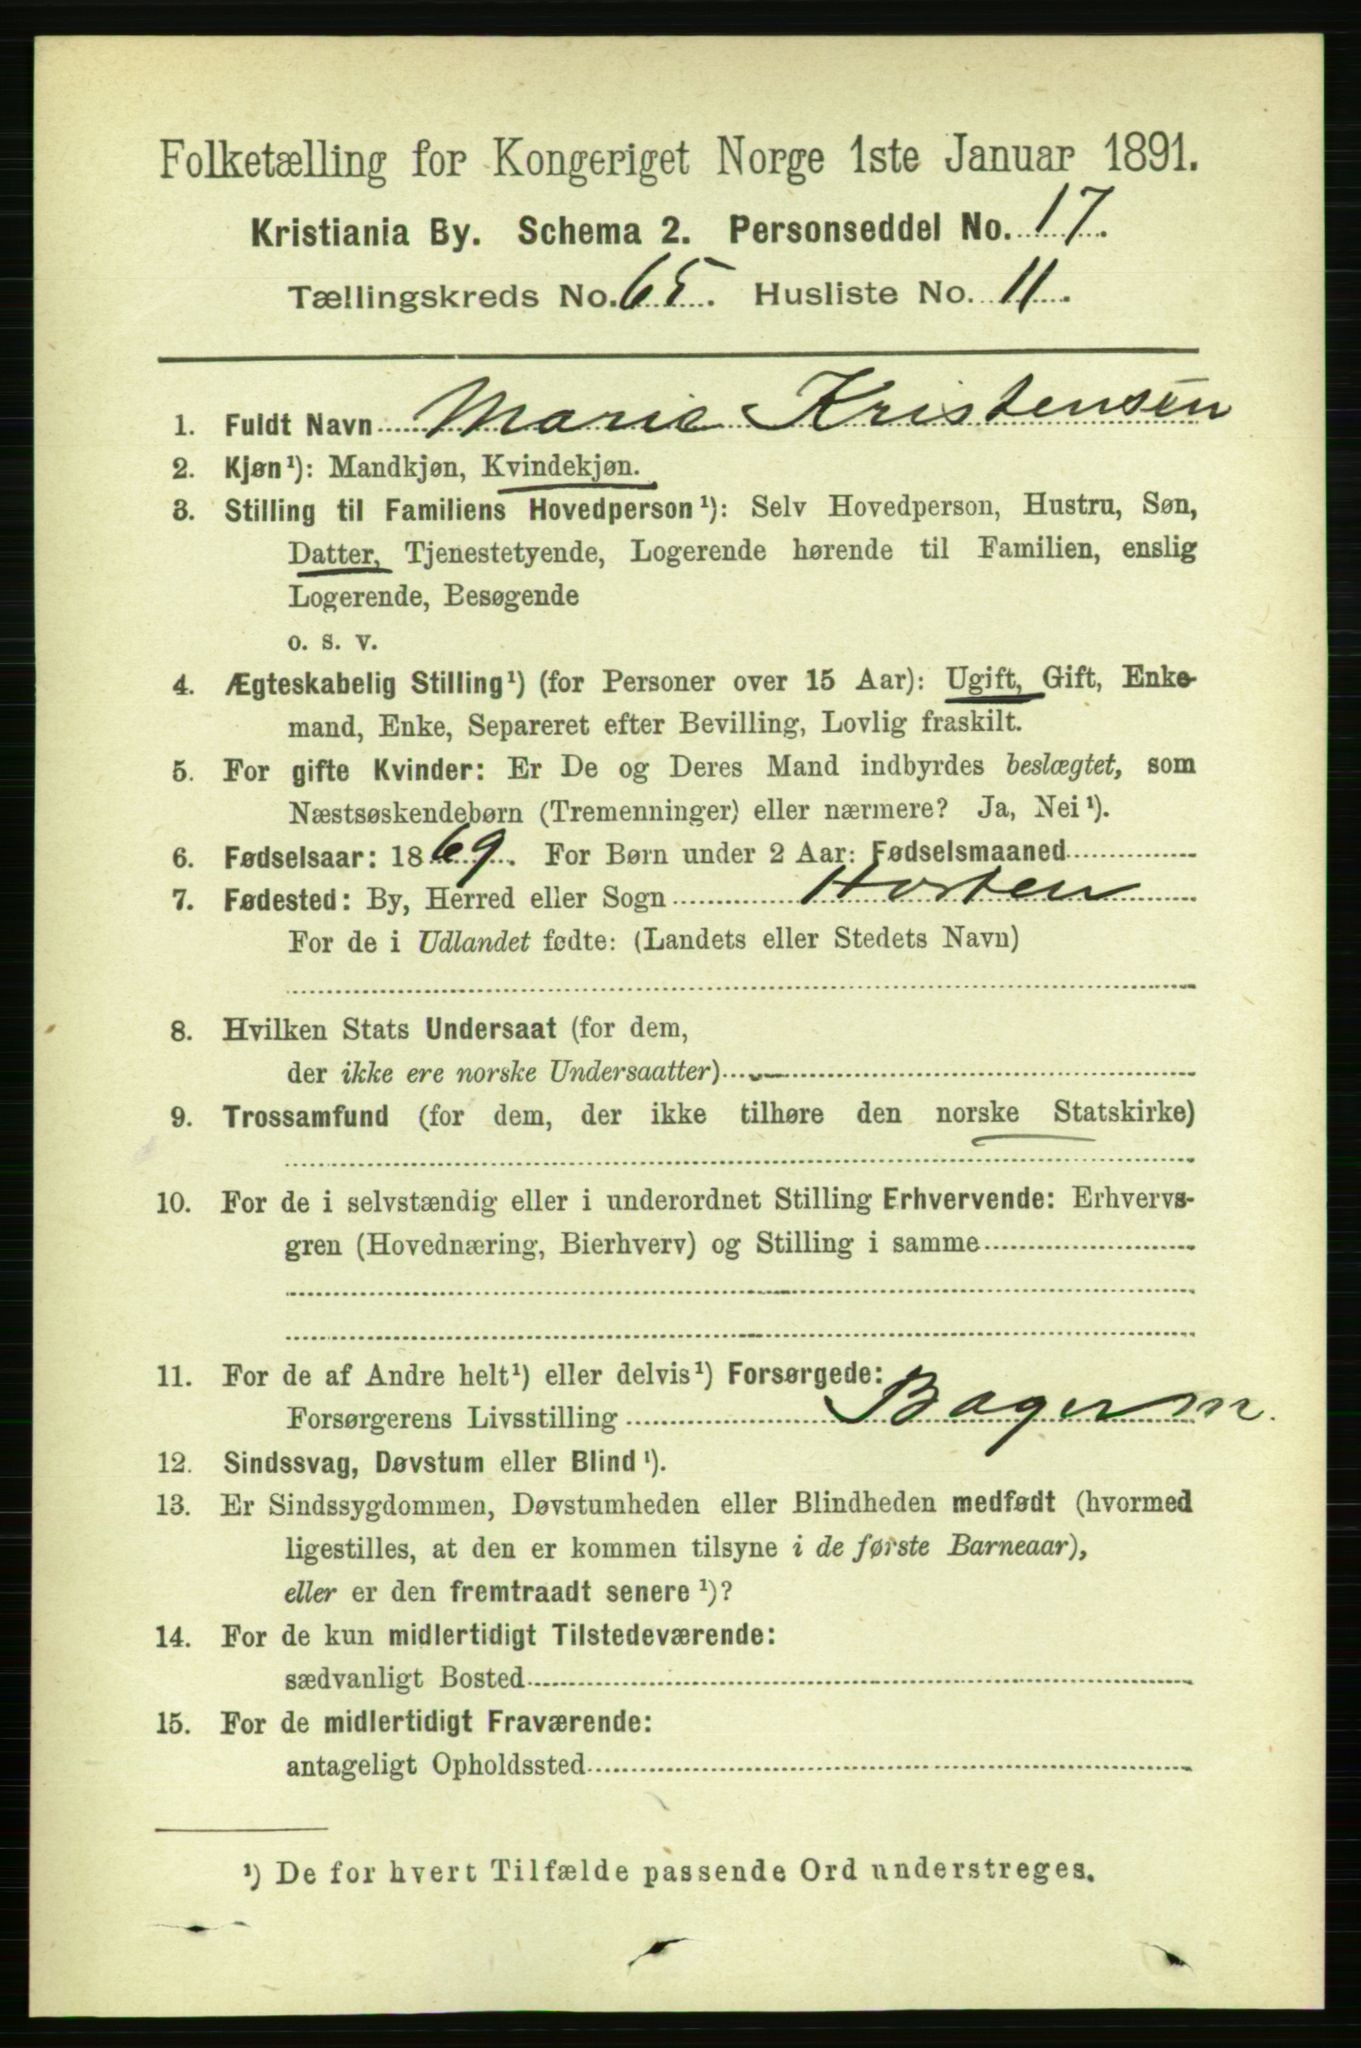 Folketælling for Kongeriget Norge 1ste Januar 1891.
Kristiania By. Schema 2. Personseddel No. 17.
Tællingskreds No. 65. Husliste No. 11.
1. Fuldt Navn Marie Kristensen
2. Kjøn¹): Mandkjøn, Kvindekjøn.
3. Stilling til Familiens Hovedperson¹): Selv Hovedperson, Hustru, Søn,
Datter, Tjenestetyende, Logerende hørende til Familien, enslig
Logerende, Besøgende
o. s. v.
4. Ægteskabelig Stilling¹) (for Personer over 15 Aar): Ugift, Gift, Enke-
mand, Enke, Separeret efter Bevilling, Lovlig fraskilt.
5. For gifte Kvinder: Er De og Deres Mand indbyrdes beslægtet, som
Næstsøskendebørn (Tremenninger) eller nærmere? Ja, Nei¹).
6. Fødselsaar: 1869. For Børn under 2 Aar: Fødselsmaaned
7. Fødested: By, Herred eller Sogn Horten
For de i Udlandet fødte: (Landets eller Stedets Navn)
8. Hvilken Stats Undersaat (for dem,
der ikke ere norske Undersaatter)
9. Trossamfund (for dem, der ikke tilhøre den norske Statskirke)
10. For de i selvstændig eller i underordnet Stilling Erhvervende: Erhvervs-
gren (Hovednæring, Bierhverv) og Stilling i samme
11. For de af Andre helt¹) eller delvis¹) Forsørgede:
Forsørgerens Livsstilling Bager m.
12. Sindssvag, Døvstum eller Blind¹).
13. Er Sindssygdommen, Døvstumheden eller Blindheden medfødt (hvormed
ligestilles, at den er kommen tilsyne i de første Barneaar),
eller er den fremtraadt senere¹)?
14. For de kun midlertidigt Tilstedeværende:
sædvanligt Bosted
15. For de midlertidigt Fraværende:
antageligt Opholdssted
¹) De for hvert Tilfælde passende Ord understreges.